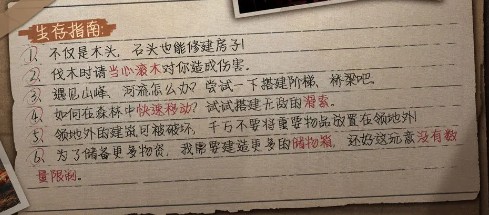 生存指南:
1. 不仅是木头，石头也能修建房子!
2. 伐木时请当心滚木对你造成伤害。
3. 遇见山峰、河流怎么办？尝试一下搭建阶梯、桥梁吧。
4. 如何在森林中快速移动？试试搭建无敌的滑索。
5. 领地外的建筑可被破坏，千万不要将重要物品放置在领地外!
6. 为了储备更多物资，我需要建造更多的储物箱，还好这玩意没有数
量限制。